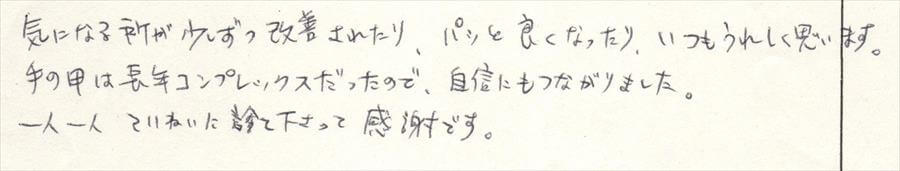 気になる所が少しずつ改善されたり、パッと良くなったり、いつもうれしく思います。
手の甲は長年コンプレックスだったので、自信にもつながりました。
一人一人 ていねいに診て下さって 感謝です。